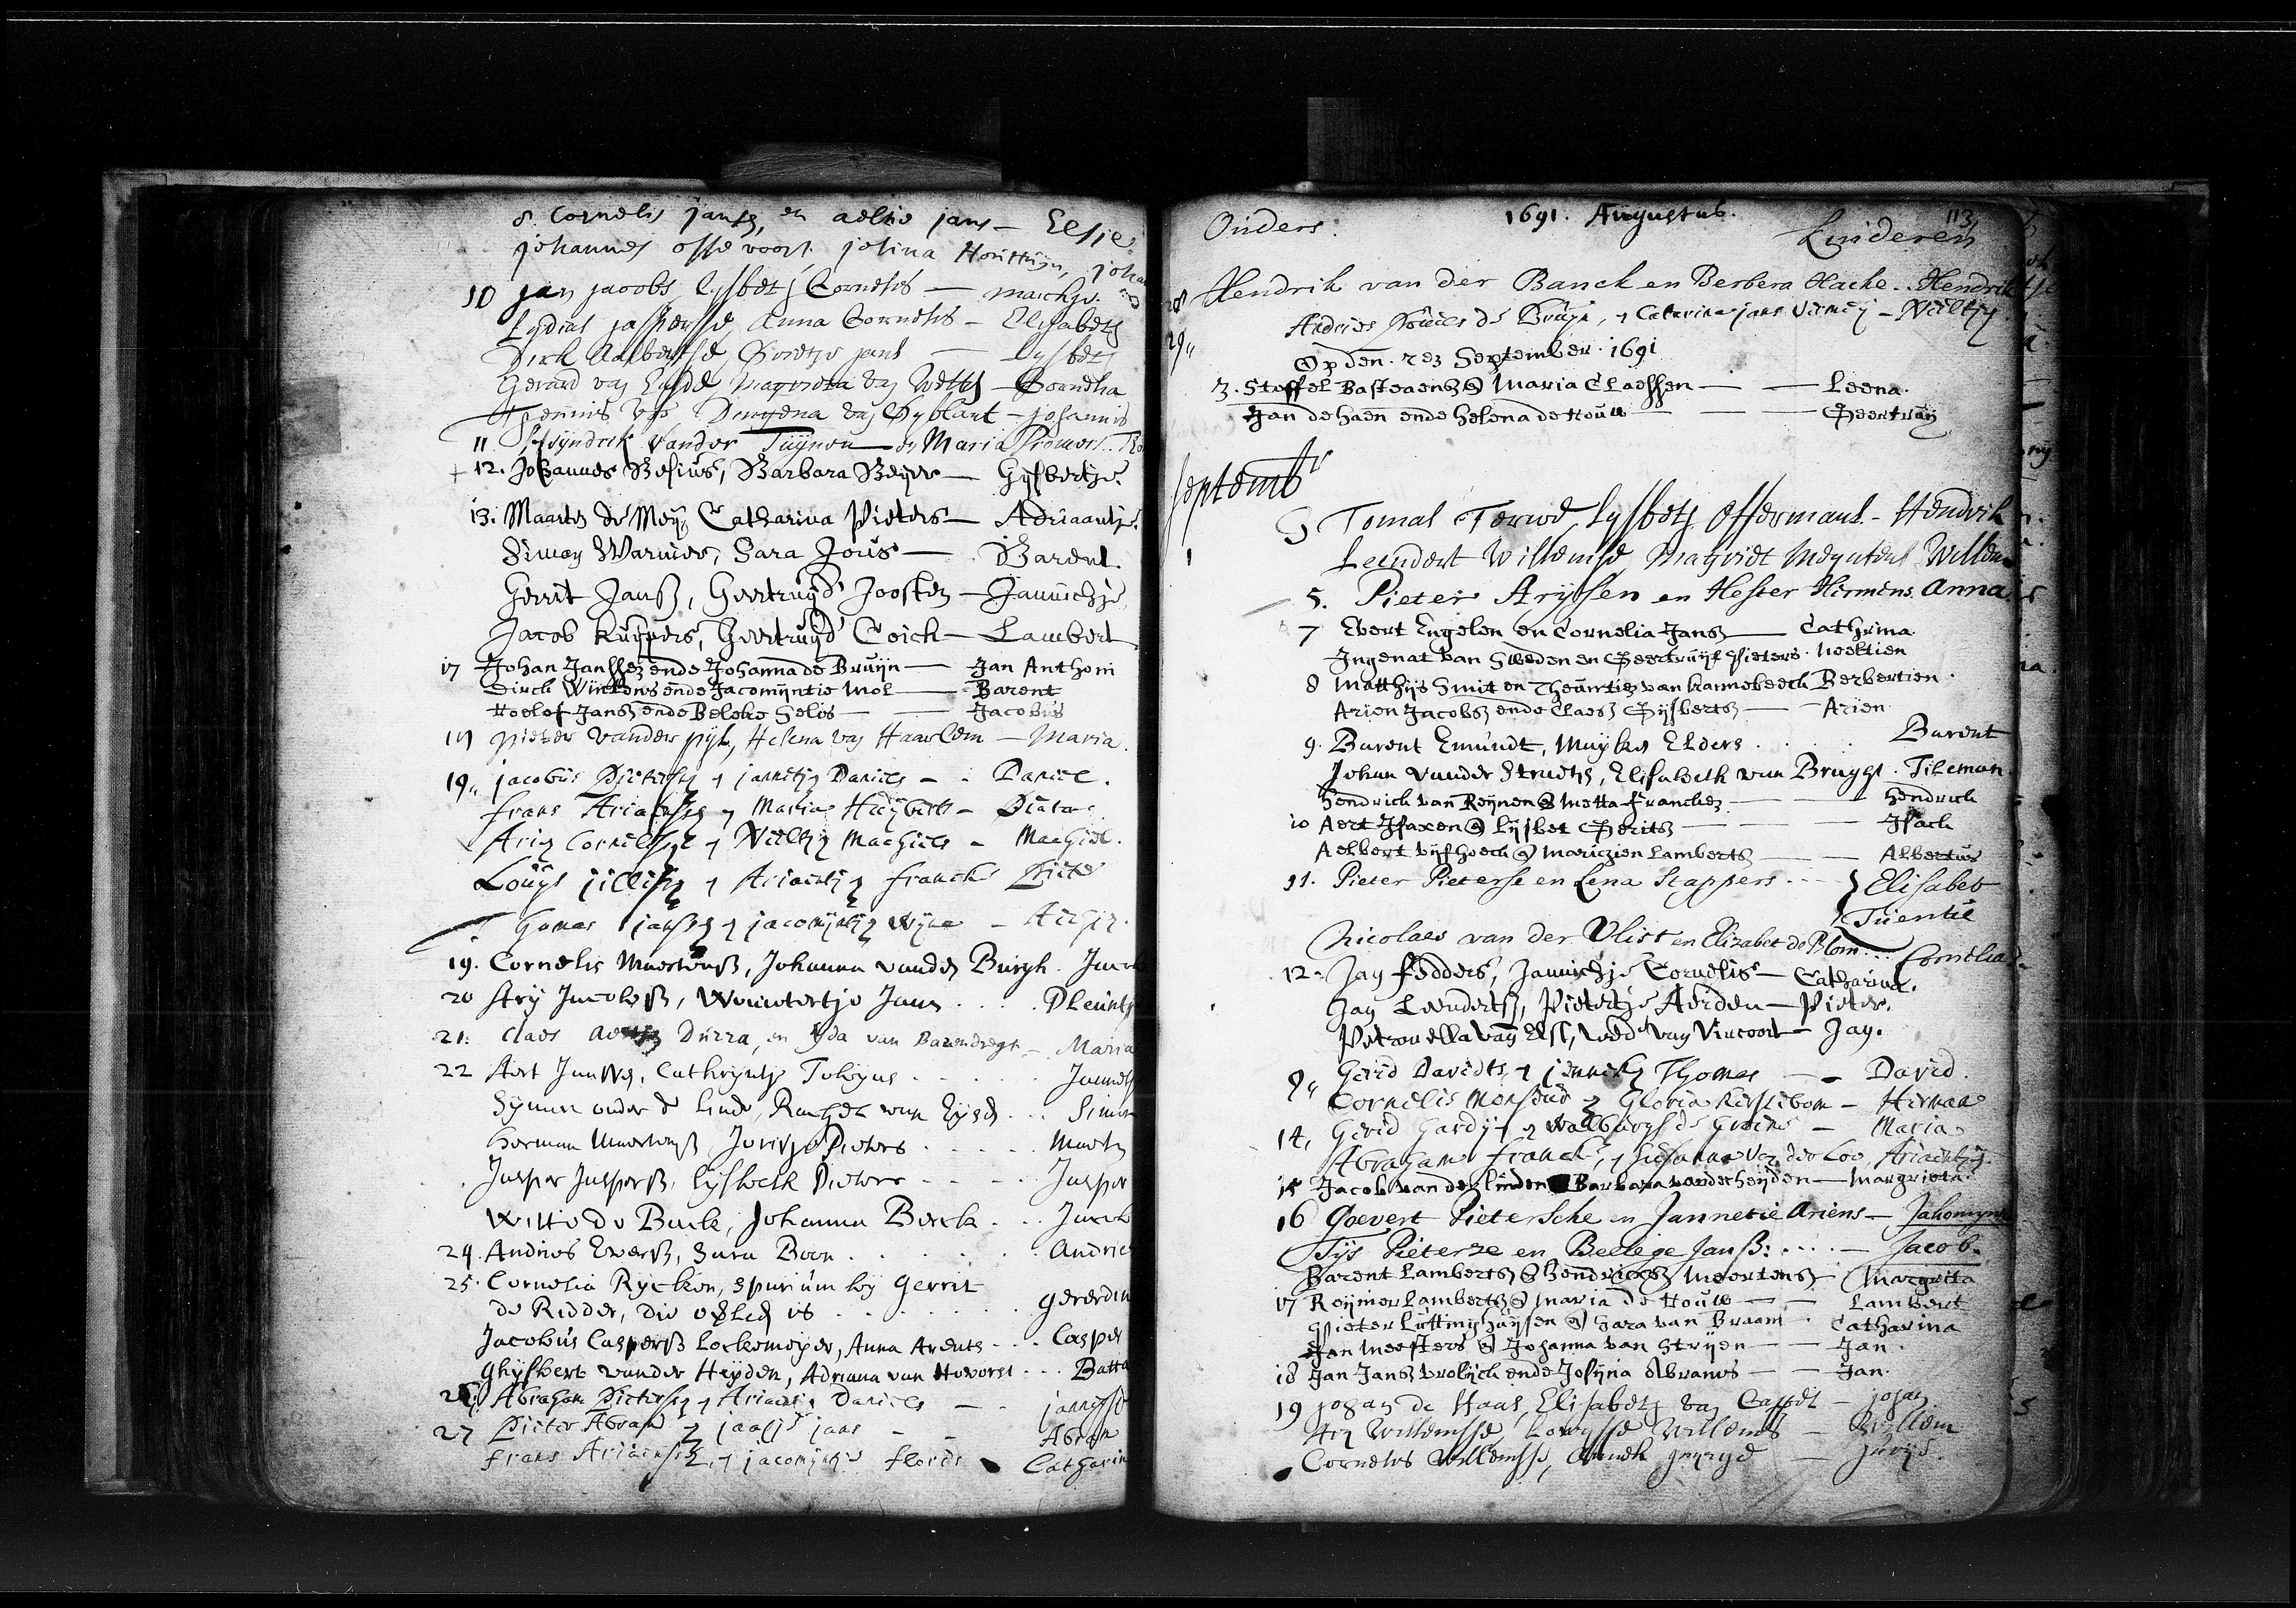 8 Cornelis jansz, en aeltie jans - Elsje
johannes ossevoort, josina Houttuijn, joha
10 jan jacobs lysbetz Cornelis - marchje
Lydias jasperse Anna Cornelis - Elisabeth
Dirk Aelbertse Grietje jans - lysbeth
Gerard van Margrieta van - Cornelia
Theunis Vos Dingena van Dyblant - johannis
11 Hyndrik vander Tuijnen en Maria
12. Johannes Besius, Barbara Beijer - Gijsbertje
13. Maarten de Meij Catharina Pieters - Adriaantje
Simon Warnier, Sara Joris - Barent
Gerrit Janss, Geertruijd Joosten - Jannichje
Jacob kuijpers, Geertruijd Coick - Lambert
17 Johan Janssen ende Johanna de Bruijn - Jan Anthoni
Dirck ende Jacomijntie mol - Barent
Roelof Jansz ende Beletie Gelis - Jacobus
pieter vander pijl, Helena van Haarlem - Maria
19 jacobus Pietersz en jannetje Daniels - Daniel
frans Ariaensz en Maria Huijberts - Pieter
Arij Cornelisz en Neeltje Machiels - Machiel
Louijs jillisz en Ariaentje francke Pieter
jansz en jacomijntje Wijne -
19. Cornelis Maertenss, Johanna vander Burgh. Jacob
20 Arij Jacobss, Wouwtertje Jans . . . Pleuntje
21. Claes Durra, en Ida van Barendregt - Maria
22 Aert Janssz, Cathrijntje Tobijas . . . Jannetje
Symon onder de linde, Rachel van Eijsd . . . Simon
Herman Maertenss Jorisje Pieters . . . Maerten
Jasper Jasperss, Lijsbeth Pieters . . . Jasper
Witte de Back, Johanna Berck . . . Jacob
24. Andries Everss, Sara Boon . . . Andries
25. Cornelia Rycken, spurium bij Gerrit
de Ridder, die is . . . Gererdina
Jacobus Casperss Lockemeijer, Anna Arents . . . Casper
Ghijsbert vander Heijden, Adriana van Hovorst . . . Batta
26. Abraham Pietersz en Ariaentje Daniels -
27 Pieter Abrams en jaapje jans - Abram
frans Ariaensz, en jacomijntje floris Catharin
Ouders. 1691. Augustus. 113
Kinderen
28 Hendrik van der Banck en Berbera Hacke. Hendrik
29 Andries Pouwels de Bruijn, en Catarina jans - Neeltje
Op den 2en September 1691
3. Stoffel Basteaensz en Maria Claessen - Leena.
Jan de haen ende helena de Houw - Geertruij
Septembr
Tomas Terwe, Lysbeth Offermans - Hendrik
1 Leendert Willemse Magriet Meyntens Willem
5. Pieter Aryssen en Hester Hermens. Anna
7 Evert Engelen en Cornelia Jansz - Cathrina
Ingenat van Sweden en Geertruijt Pieters. Neeltien
8 Matthijs Smit en Theuntien van kannebeeck Berbertien.
Arien Jacobsz ende Claesz Gijsberts - Arien
9. Barent Emundt, Maijke Elders . . . Barent
Johan vander Straeten, Elisabeth van Brugge. Tileman
Hendrick van Reijnen en Metta francken - Hendrick
10 Aert Isaxen en Lijsbet Gerits - Isack
Aelbert vijfhoeck en Mariczien Lamberts - Albertus
11. Pieter Pieterse en Lena Stappers . . . } Elisabet
} Trientie
Nicolaes van der Vlist en Elizabet de Blom . . . Cornelia
12. Jan fedders, Jannichje Cornelis - Catharina.
Jan Leendertsz, Pietertje Aerden - Pieter.
Petronella van Elst, wed. van Vincoort - Jan.
9 Gerid Davidts en jannetje Thomas - David.
Cornelis en Gloria kerssebom - Herman
14, Gerid en Walburgh de - Maria
Abraham franck, en Susanna van der Loo, Ariaentje
15 Jacob vander linden Barbara vander heijden - Margrieta
16 Goevert Pietersche en Jannetie Ariens - Jakomyn
Tijs Pieterze en Beelege Janss: . . . - Jacob.
Barent Lambertsz en Hendricksz Meertensz - Margrita
17 Reijmer Lambertsz en Maria de Houw - Lambert
Pieter Luttinghuijsen en Sara van Braam. Catharina
Jan Meesters en Johanna van Strijen - Jan.
18 Jan Jansz vrolijck ende Josijna Abrams - Jan.
19 johan de Haas, Elisabeth van Cappel - johan
Arij Willemsse, Lowysse Willems - Willem
Cornelis Willemsse,